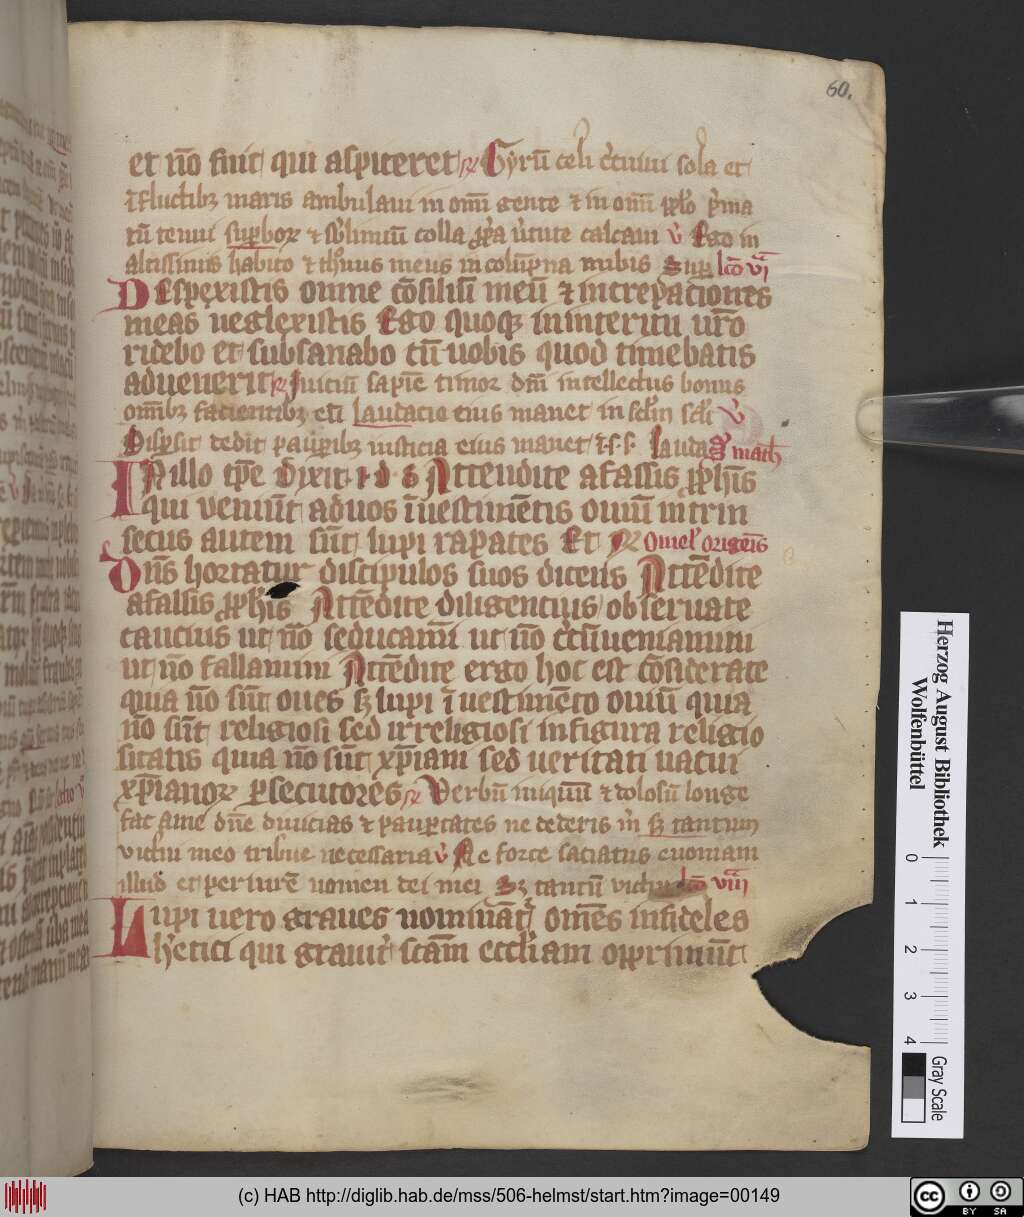 60.
et nō fuit qui aspiceret R Gyrū celi c̄cuiui sola et
ī fluctibꝫ maris ambulaui in omī gente ⁊ in omī pplo p̍ma
tū tenui supboꝝ ⁊ sblimiū colla ppa utute calcaui v̍ Ego in
altissimis habito ⁊ thnus meus in colūpna nubis Sup lc̄o vi
Despexistis omne cōsiliū meū ⁊ increpaciones
meas neglexistis Ego quoqꝫ in interitu urō
ridebo et subsanabo cū uobis quod timebatis
aduenerit R Iniciū sapiē timor dnī intellectus bonus
omībꝫ facientibꝫ eū Laudacio eius manet in sclm scli v̍
Dispsit dedit paupibꝫ iusticia eius manet ī s s Lauda S math
In illo tpe dixit i d s Attendite a falsis pphis
qui veniūt ad uos ī uestimētis ouiū intrin
secus autem sūt lupi rapates Et R Omel origeis
Dns hortatur discipulos suos dicens Attēdite
a falsis pphis Attēdite diligentius obseruate
caucius ut nō seducami ut nō c̄cūueniamini
ut nō fallamini Attēdite ergo hoc est cōsiderate
quia nō sūt oues sꝫ lupi ī uestimēto ouiū quia
nō sūt religiosi sed irreligiosi in figura religio
sitatis quia nō sūt xpiani sed ueritati uacui
xpianoꝝ psecutores R Verbū iniquū ⁊ dolosū longe
fac a me dne diuicias ⁊ paupertates ne dederis m̍ sꝫ tantum
victui meo tribue necessaria v̍ Ne forte saciatus euomam
illud et periurē nomen dei mei Sꝫ tantū victui lc̄o viii
Lupi uero graues nomināt omēs infideles
hetici qui graui scam eccliam opprimūt
Herzog August Bibliothek
Wolfenbüttel
0 1 2 3 4
Gray Scale
(c) HAB http://diglib.hab.de/mss/506-helmst/start.htm?image=00149
cc BY SA